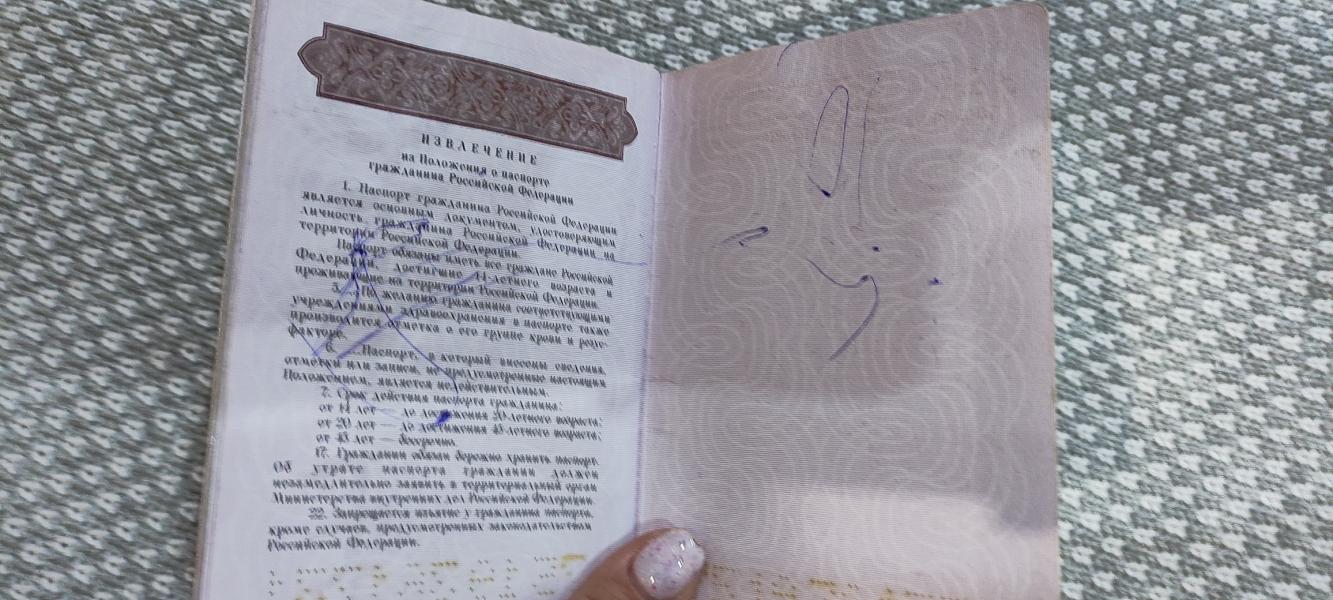 ИЗВЛЕЧЕНИЕ
из Положения о паспорте
гражданина Российской Федерации
1. Паспорт гражданина Российской Федерации
является основным документом, удостоверяющим
личность гражданина Российской Федерации на
территории Российской Федерации.
Паспорт обязаны иметь все граждане Российской
Федерации, достигшие 14-летнего возраста и
проживающие на территории Российской Федерации.
5. ...По желанию гражданина соответствующими
учреждениями здравоохранения в паспорте также
производится отметка о его группе крови и резус-
факторе.
6. ...Паспорт, в который внесены сведения,
отметки или записи, не предусмотренные настоящим
Положением, является недействительным.
7. Срок действия паспорта гражданина:
от 14 лет — до достижения 20-летнего возраста;
от 20 лет — до достижения 45-летнего возраста;
от 45 лет — бессрочно.
17. Гражданин обязан бережно хранить паспорт.
Об утрате паспорта гражданин должен
незамедлительно заявить в территориальный орган
Министерства внутренних дел Российской Федерации.
22. Запрещается изъятие у гражданина паспорта,
кроме случаев, предусмотренных законодательством
Российской Федерации.